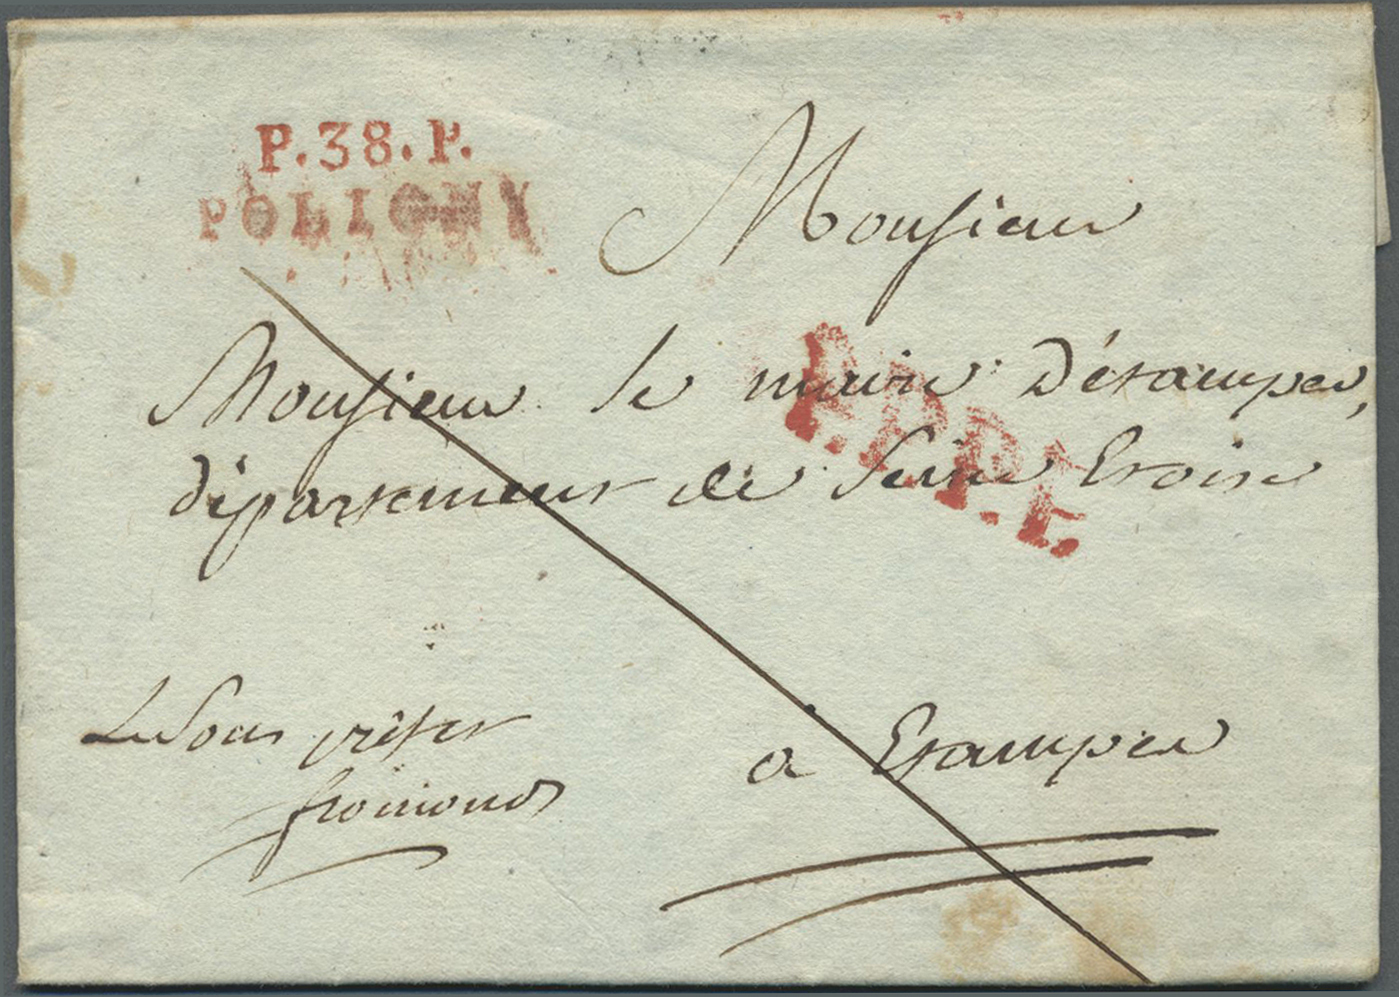 P.38.P.
POLIGNY
Monsieur
Monsieur le maire D'étampes,
département de Seine Etoise
P.P.P.P.
Le Sous préfet
froimond
a Etampes